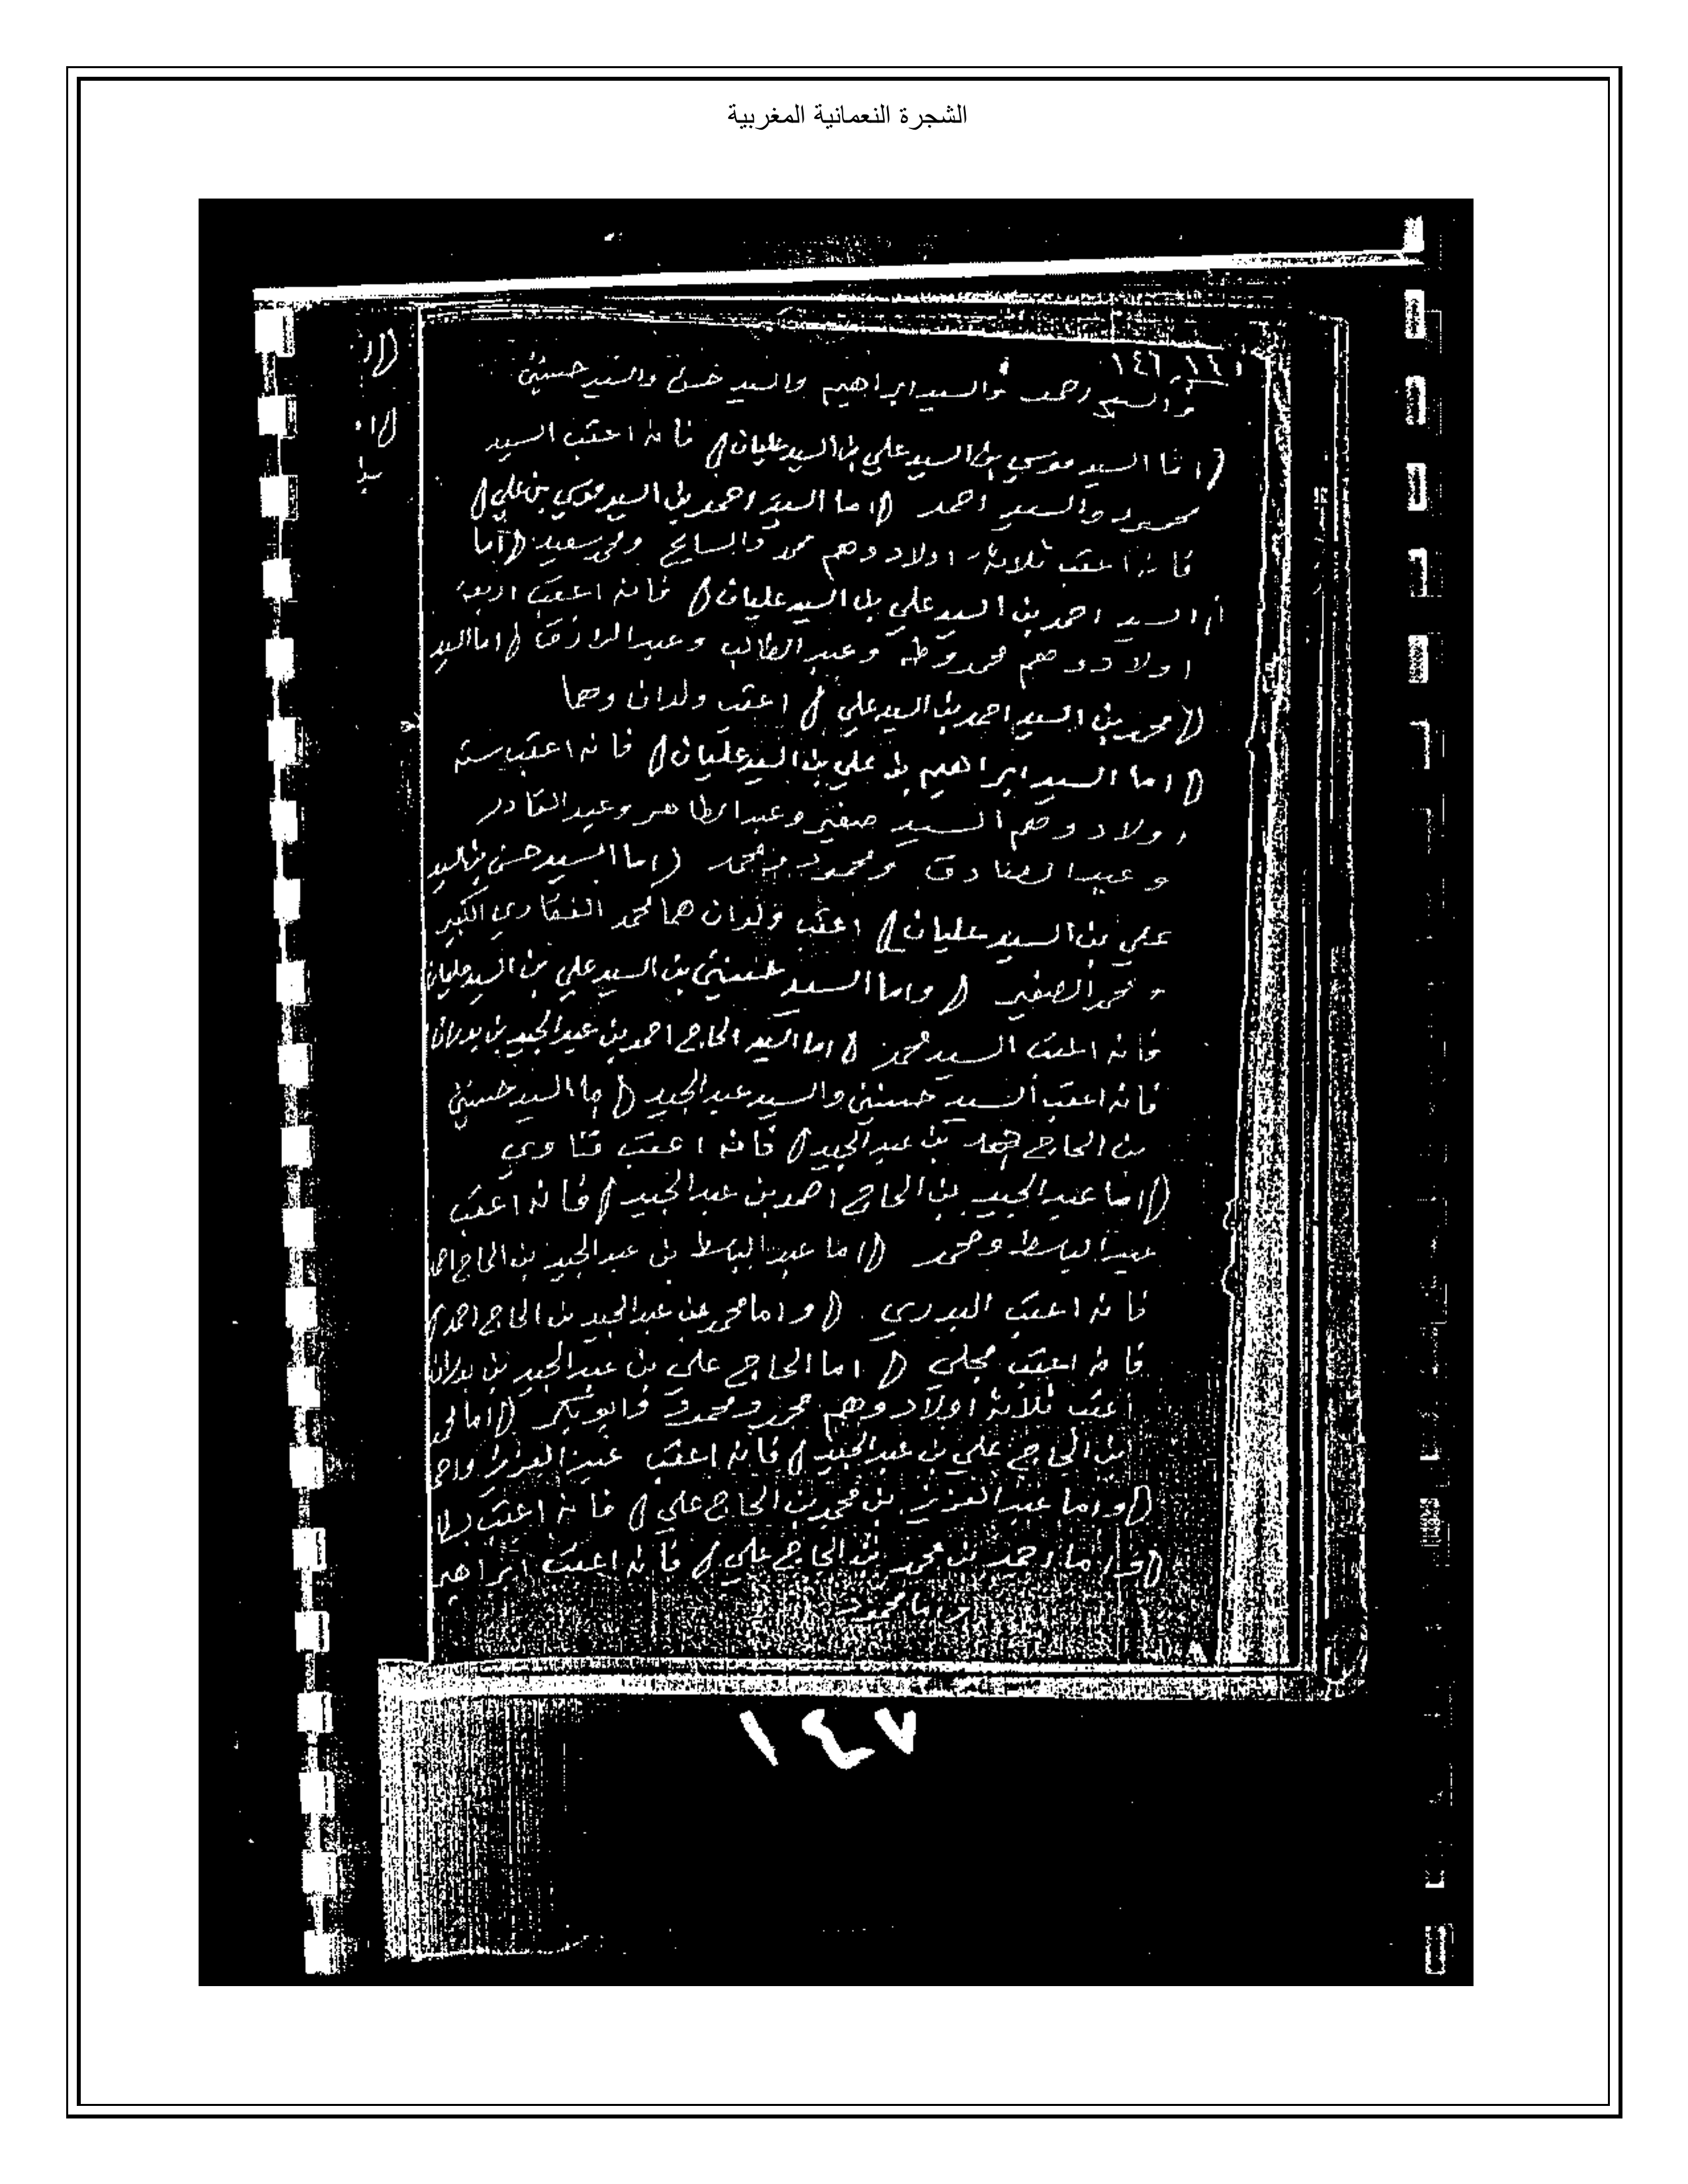 الشجرة النعمانية المغربية
١٤٦
والسيد احمد والسيد ابراهيم والسيد حسن والسيد حسيني
(اما السيد موسي بن السيد علي بن السيد عليان) فانه اعقب السيد
محمود والسيد احمد (اما السيد احمد بن السيد موسي بن علي)
فانه اعقب ثلاثة اولاد وهم محمد والسايح ومحمد سعيد (اما
السيد احمد بن السيد علي بن السيد عليان) فانه اعقب اربعة
اولاد وهم محمد وطه وعبد الطالب وعبد الرازق (اما السيد
(محمد بن السيد احمد بن السيد علي) اعقب ولدان وهما
(اما السيد ابراهيم بن علي بن السيد عليان) فانه اعقب ستة
اولاد وهم السيد صغير وعبد الظاهر وعبد القادر
وعبد الصادق ومحمود ومحمد (اما السيد حسن بن السيد
علي بن السيد عليان) اعقب ولدان هما محمد القناوي الكبير
ومحمد الصغير (واما السيد حسيني بن السيد علي بن السيد عليان
فانه اعقب السيد محمد (اما السيد الحاج احمد بن عبد الجيد بن بدران
فانه اعقب السيد حسيني والسيد عبد الجيد (اما السيد حسيني
بن الحاج احمد بن عبد الجيد) فانه اعقب قناوي
(اما عبد الجيد بن الحاج احمد بن عبد الجيد) فانه اعقب
عبد الباسط ومحمد (اما عبد الباسط بن عبد الجيد بن الحاج احمد
فانه اعقب البدري (واما محمد بن عبد الجيد بن الحاج احمد)
فانه اعقب مجلي (اما الحاج علي بن عبد الجيد بن بدران
اعقب ثلاثة اولاد وهم محمد ومحمود وابو بكر (اما محمد
بن الحاج علي بن عبد الجيد) فانه اعقب عبد العزيز واحمد
(واما عبد العزيز بن محمد بن الحاج علي) فانه اعقب
(واما احمد بن محمد بن الحاج علي) فانه اعقب ابراهيم
واما محمود
١٤٧